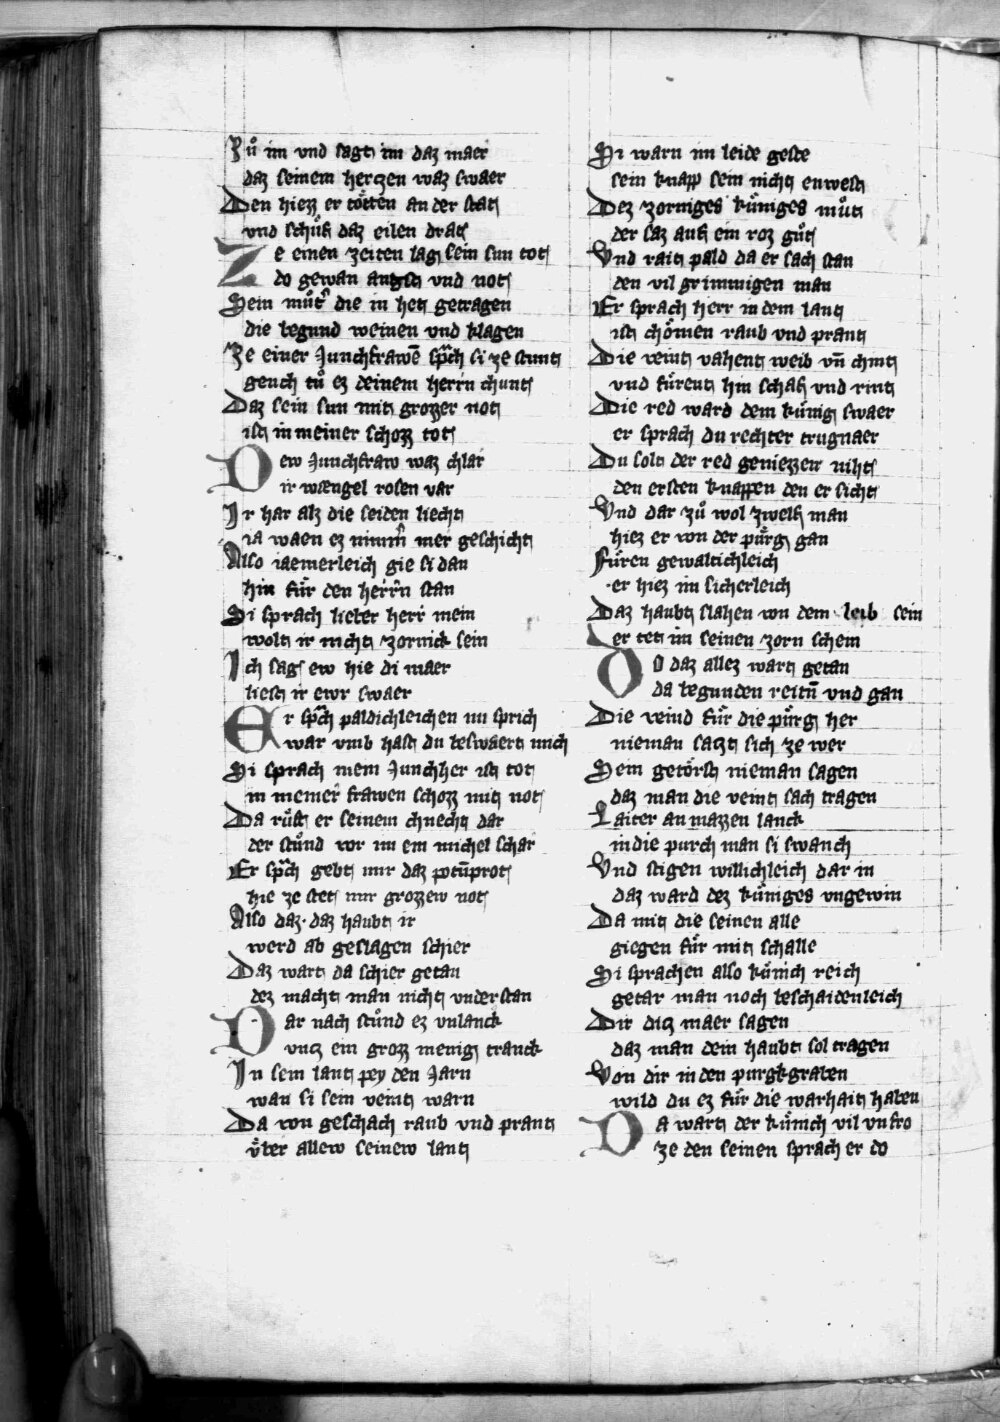 Zuͦ im vnd sagt im daz maer
daz seinem hertzen waz swaer
Den hiezz er toͤtten an der stat
vnd schuͤff daz eilen drat
Ze einen zeiten lag sein sun tot
do gewan angst vnd not
Sein muͦtͬ die in het getragen
die begund weinen vnd klagen
Ze einer Junchfrawē spͣch si ze stunt
gench tuͦ ez deinem herrn chunt
Daz sein sun mit grozzer not
ist in meiner schozz tot
Dew Junchfraw waz chlar
ir waengel rosen var
Ir har alz die seiden liecht
ia waen ez nimmͬ mer geschicht
Also iaemerleich gie si dan
hin fuͤr den herrn stan
Si sprach lieber herr mein
wolt ir nicht zornick sein
Ich sag ew hie di maer
liest ir ewr swaer
Er spͣch paldichleichen nu sprich
war vmb hast du beswaert mich
Si sprach mein Junchher ist tot
in meiner frawen schozz mit not
Da ruͦft er seinem chnecht dar
der stuͦnd vor im ein michel schar
Er spͣch gebt mir daz potn̄prot
hie ze stet mir grozzew not
Also daz daz haubt ir
werd ab geslagen schier
Daz wart da schier getan
dez macht man nicht vnderstan
Dar nach stuͦnd ez vnlanck
vntz ein grozz menig tranck
In sein lant pey den Jarn
wan si sein veint warn
Da von geschach raub vnd prant
vͤber allew seinew lant
Si warn im leide geste
sein knapp sein nicht enwest
Dez zorniges kuͤniges muͦt
der saz auff ein roz guͦt
Vnd rait pald da er sach stan
den vil grimmigen man
Er sprach herr in dem lant
ist choͤmen raub vnd prant
Die veint vahent weib vn̄ chint
vnd fuͤrent hin schaff vnd rint
Die red ward dem kuͤnig swaer
er sprach du rechter trugnaer
Du solt der red geniezzen niht
den ersten knappen den er sicht
Vnd dar zuͦ wol zwelff man
hiez er von der puͤrg gan
Fuͤren gewaltichleich
er hiez im sicherleich
Daz haubt slahen von dem leib sein
er tet im seinen zorn schein
Do daz allez wart getan
da begunden reitn̄ vnd gan
Die veind fuͤr die puͤrg her
nieman satzt sich ze wer
Sein getoͤrst nieman sagen
daz man die veint sach tragen
Laiter an mazzen lanck
in die purch man si swanch
Vnd stigen willichleich dar in
daz ward dez kuͤniges vngewin
Da mit die seinen alle
giegen fuͤr mit schalle
Si sprachen also kuͤnich reich
getar man noch beschaidenleich
Dir ditz maer sagen
daz man dein haubt sol tragen
Von dir in den purgkgraben
wild du ez fuͤr die warhait haben
Da wart der kuͤnich vil vnfro
ze den seinen sprach er do